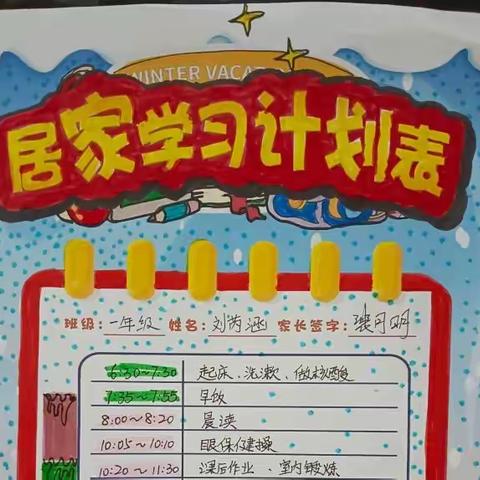 WINTER VACAT
居家学习计划表
班级：一年级 姓名：刘芮涵 家长签字：裴月明
6:30~7:30 起床、洗漱、做核酸
7:35~7:55 早饭
8:00~8:20 晨读
10:05~10:10 眼保健操
10:20~11:30 课后作业、室内锻炼